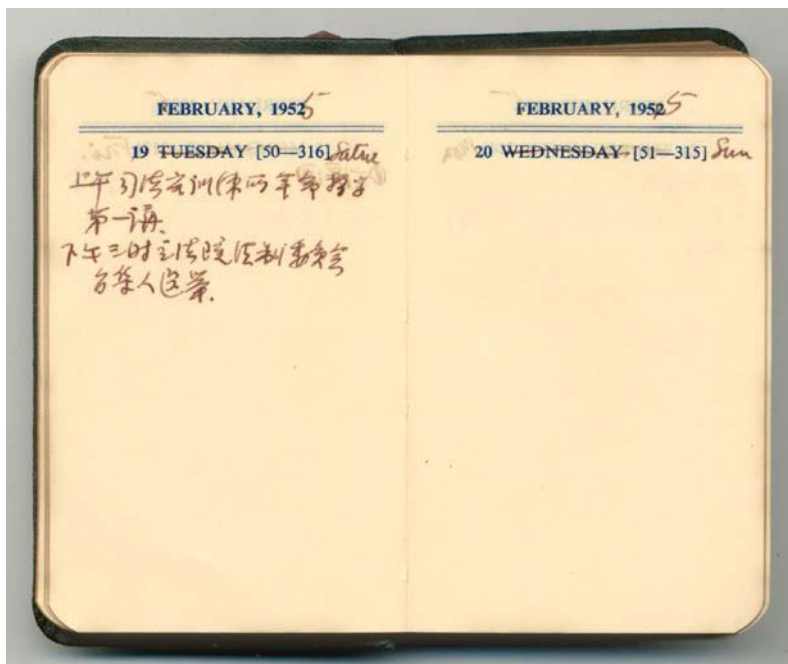 FEBRUARY, 1955
19 TUESDAY [50—316] Satur
上午司法官训练所军命哲学
第一讲.
下午三时立法院法制委员会
召集人选举.
FEBRUARY, 1955
20 WEDNESDAY [51—315] Sun